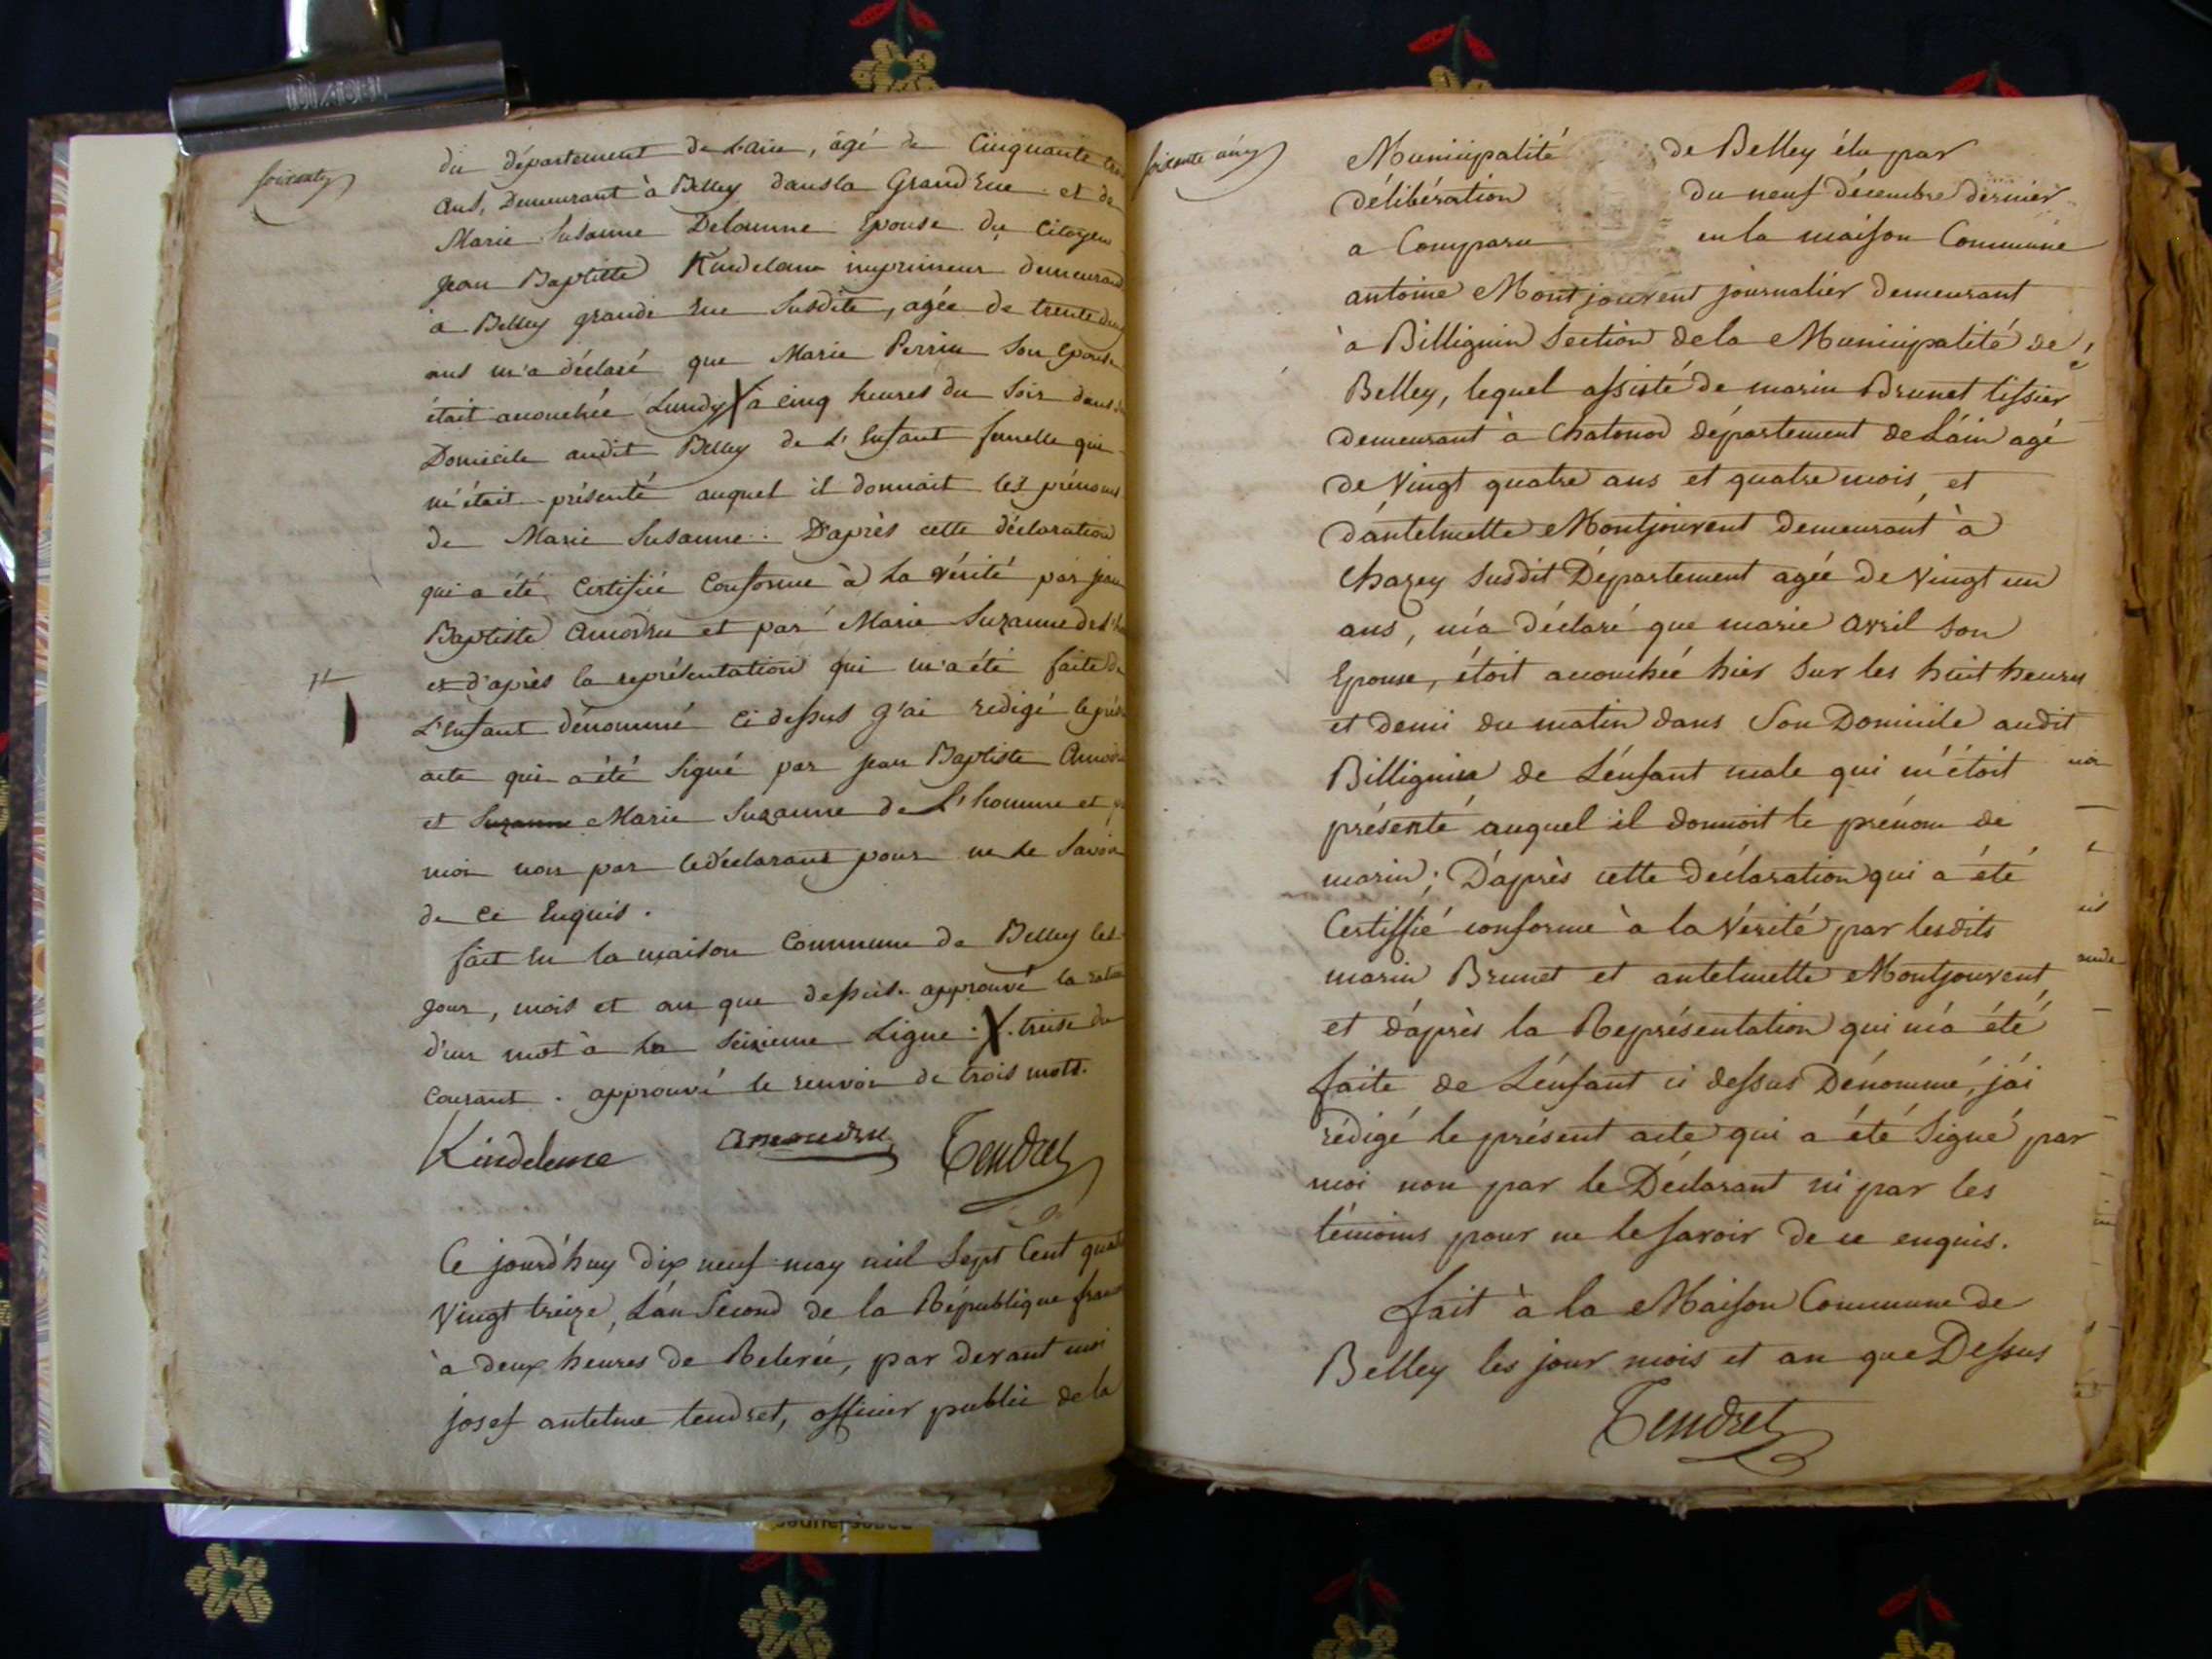 soixante
du département de L'ain, âgé de Cinquante trois
ans, Demeurant à Belley dans la Grand Rue et de
Marie Susanne Delomme Epouse du Citoyen
Jean Baptiste Kindeleme imprimeur demeurant
à Belley grande Rue Susdite, agée de trente deux
ans m'a déclaré que Marie Perrin Son Epouse
était accouchée Lundy X à cinq heures du Soir dans
Domicile audit Belley de L'Enfant femelle qui
m'était présenté auquel il donnait les prénoms
de Marie Susanne. D'après cette déclaration
qui a été Certifiée Conforme à La Vérité par jean
Baptiste Amoudru et par Marie Suzanne
et d'après la représentation qui m'a été faite de
L'Enfant dénommé Ci dessus J'ai redigé le
acte qui a été Signé par jean Baptiste
et Suzanne Marie Suzanne de L'homme et
moi non par le déclarant pour ne le Savoir
de ce Enquis.
fait En la maison Commune de Belley les
Jour, mois et an que dessus. approuvé la
d'un mot à La Seizieme Ligne. X. treise du
Courant. approuvé le renvoi de trois mots.
Kindeleme Amoudru Tendret
Ce jourd'huy dix neuf may mil Sept Cent
Vingt treize, L'an Second de la République
à deux heures de Relevée, par devant moi
josef antelme tendret, officier public de la
soixante un
Municipalité de Belley élu par
délibération du neuf décembre dernier
a Comparu en la maison Commune
antoine Montjouvent journalier demeurant
à Billignin Section de la Municipalité de
Belley, lequel assisté de marin Brunet tissier
demeurant à Chatonod département de L'ain agé
de Vingt quatre ans et quatre mois, et
d'antelmette Montjouvent demeurant à
Chazey Susdit Département agée de Vingt un
ans, m'a déclaré que marie avril Son
Epouse, étoit accouchée hier Sur les huit heures
et demi du matin dans Son Domicile audit
Billignin de L'enfant male qui m'étoit
présenté auquel il donnoit le prénom de
marin; D'après cette déclaration qui a été
Certiffié conforme à la Vérité par lesdits
marin Brunet et antelmette Montjouvent,
et d'après la Représentation qui m'a été
faite de L'enfant ci dessus Dénommé, j'ai
rédigé le présent acte qui a été Signé par
moi non par le Déclarant ni par les
témoins pour ne le savoir de ce enquis.
fait à la Maison Commune de
Belley les jour mois et an que Dessus
Tendret